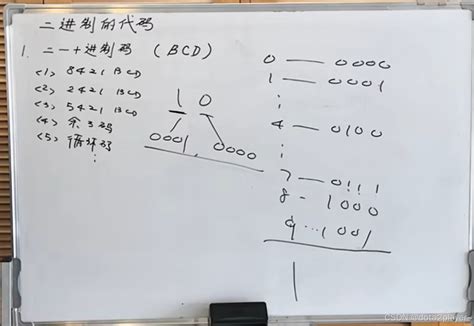 二进制的代码
1. 二—十进制码 (BCD)
<1> 8421 BCD
<2> 2421 BCD
<3> 5421 BCD
<4> 余3码
<5> 循环码
⋮
1 0
0001, 0000
0 — 0000
1 — 0001
⋮
4 — 0100
⋮
7 — 0111
8 - 1000
9 ... 1001
CSDN @dota2player